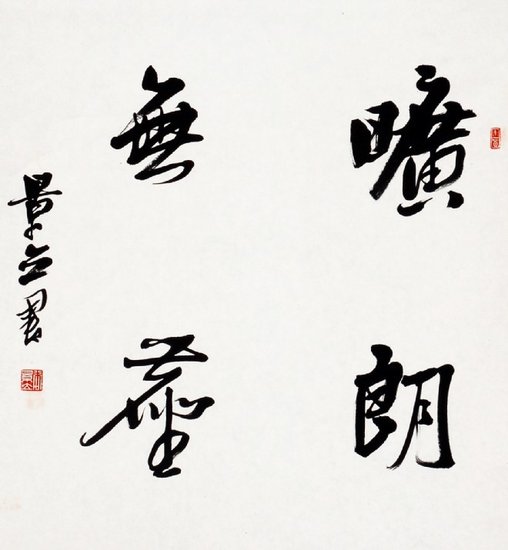 曠朗
無塵
景 書